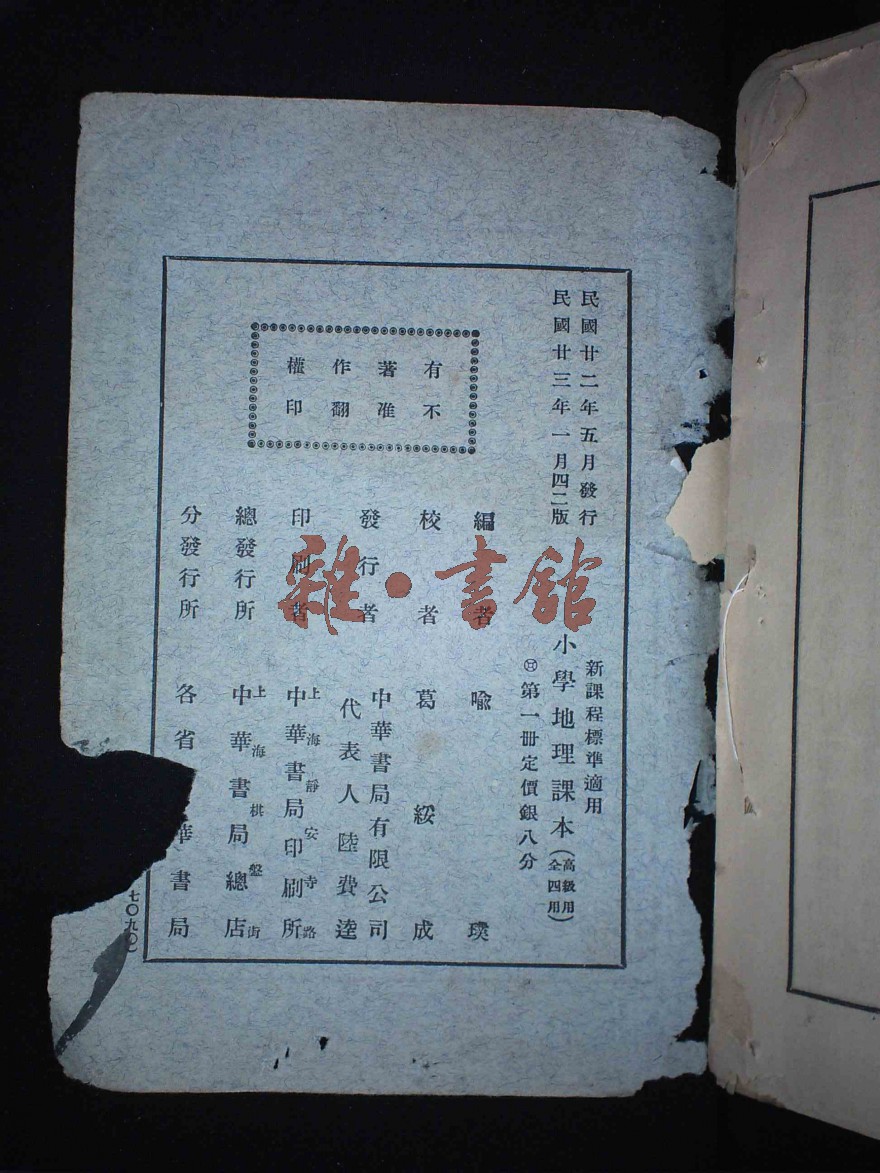 民國廿二年五月發行
民國廿三年一月四二版
有著作權
不准翻印
新課程標準適用
小學地理課本（高級用
全四用）
第一冊定價銀八分
編者 喩璞
校者 葛綏成
發行者 中華書局有限公司
代表人陸費逵
印刷者 上海靜安寺路
中華書局印刷所
總發行所 上海棋盤街
中華書局總店
分發行所 各省 華書局
七〇九〇）
雜·書館